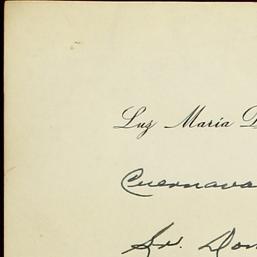 Luz María
Cuernava
Sr. Don